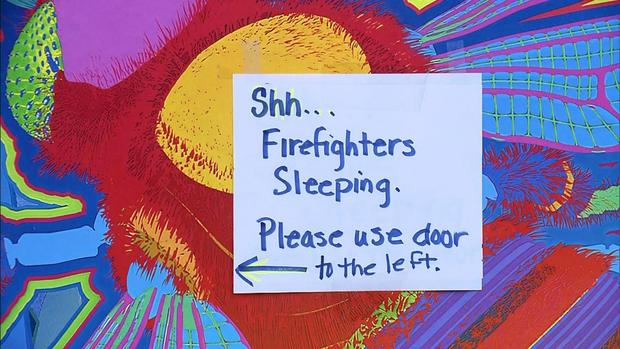 Shh...
Firefighters
Sleeping.
Please use door
to the left.